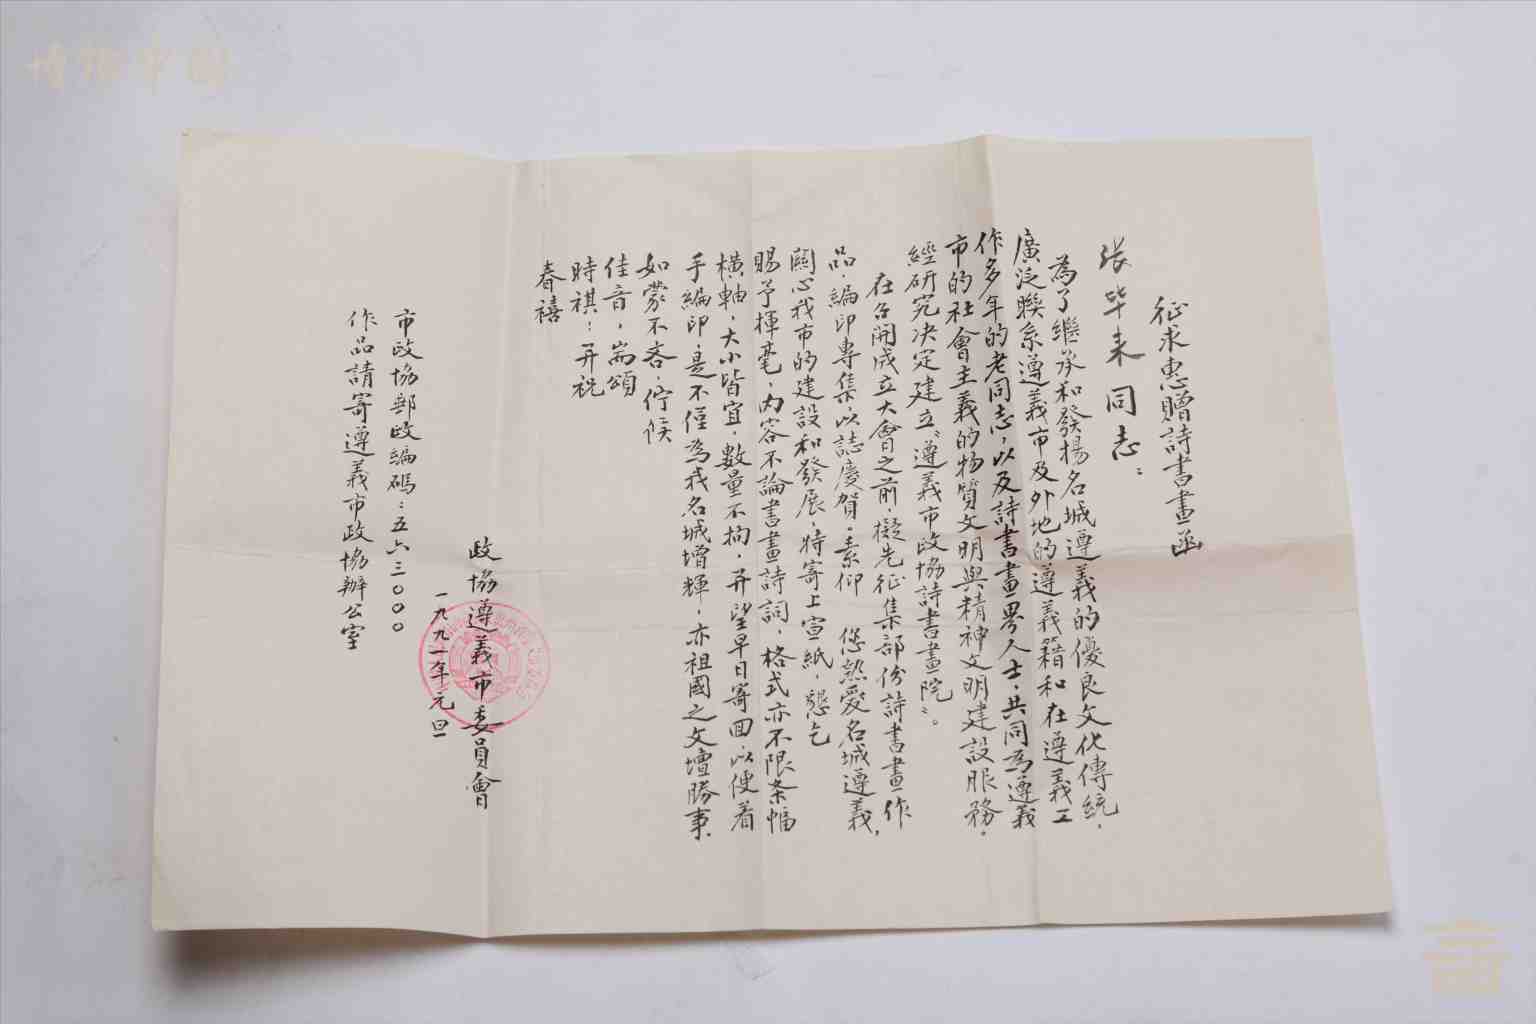 征求惠贈詩書畫函
张毕来同志：
為了繼承和發揚名城遵義的優良文化傳統，
廣泛聯系遵義市及外地的遵義籍和在遵義工
作多年的老同志，以及詩書畫界人士，共同為遵義
市的社會主義的物質文明與精神文明建設服務。
經研究决定建立“遵義市政協詩書畫院”。
在召開成立大會之前，擬先征集部份詩書畫作
品，編印專集以誌慶賀。素仰 您热爱名城遵義，
關心我市的建設和發展，特寄上宣紙，懇乞
賜予揮毫，内容不論書畫詩詞，格式亦不限条幅
橫軸，大小皆宜，數量不拘，并望早日寄回以便着
手編印，是不僅為我名城增輝，亦祖國之文壇勝事。
如蒙不吝，佇候
佳音，耑頌
時祺！并祝
春禧
政協遵義市委員會
一九九一年元旦
市政協郵政編碼：五六三000
作品請寄遵義市政協辦公室
博物中国